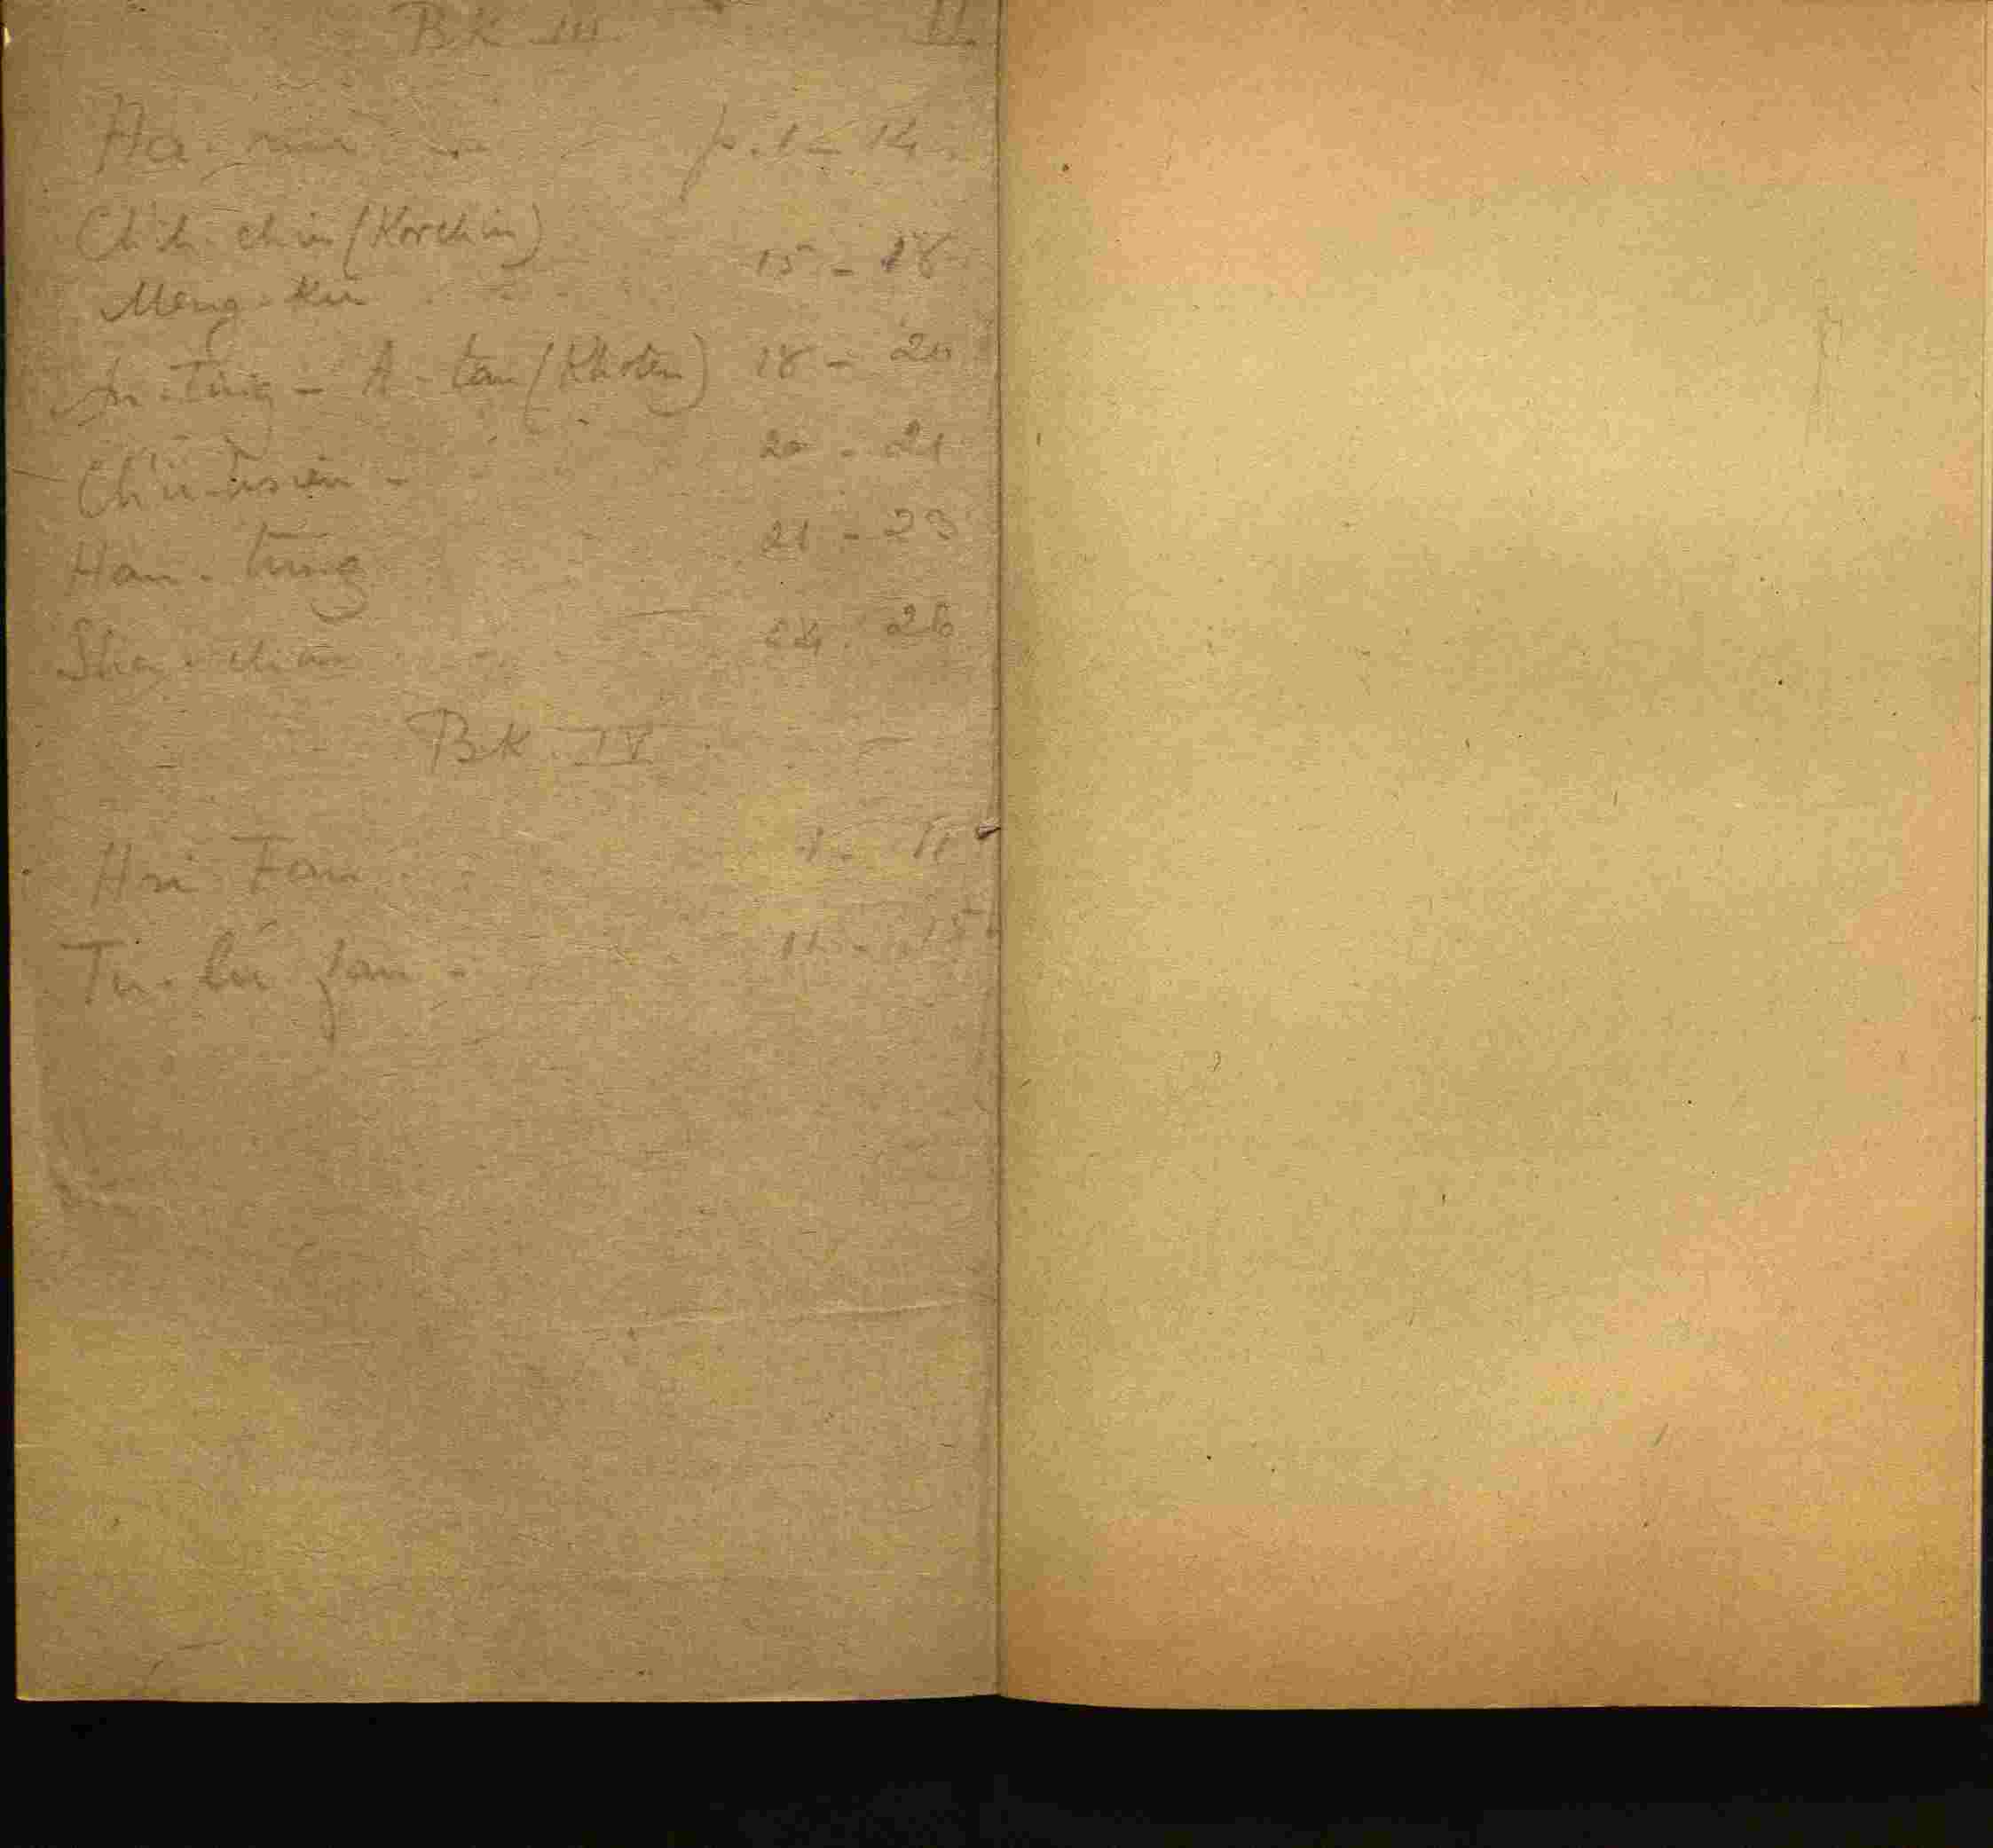 Bk III II
Ha-mi p. 1 - 14.
Ch'ih-chin (Korchin)
Meng-ku 15 - 18
An-ting - A-tan (Khoten) 18 - 20
Ch'ü-hsien - 20 - 21
Han-tung 21 - 23
Sha-chou 24. 26
Bk IV
Hsi Fan 1 - 11
Tu-lu fan - 11 - 15